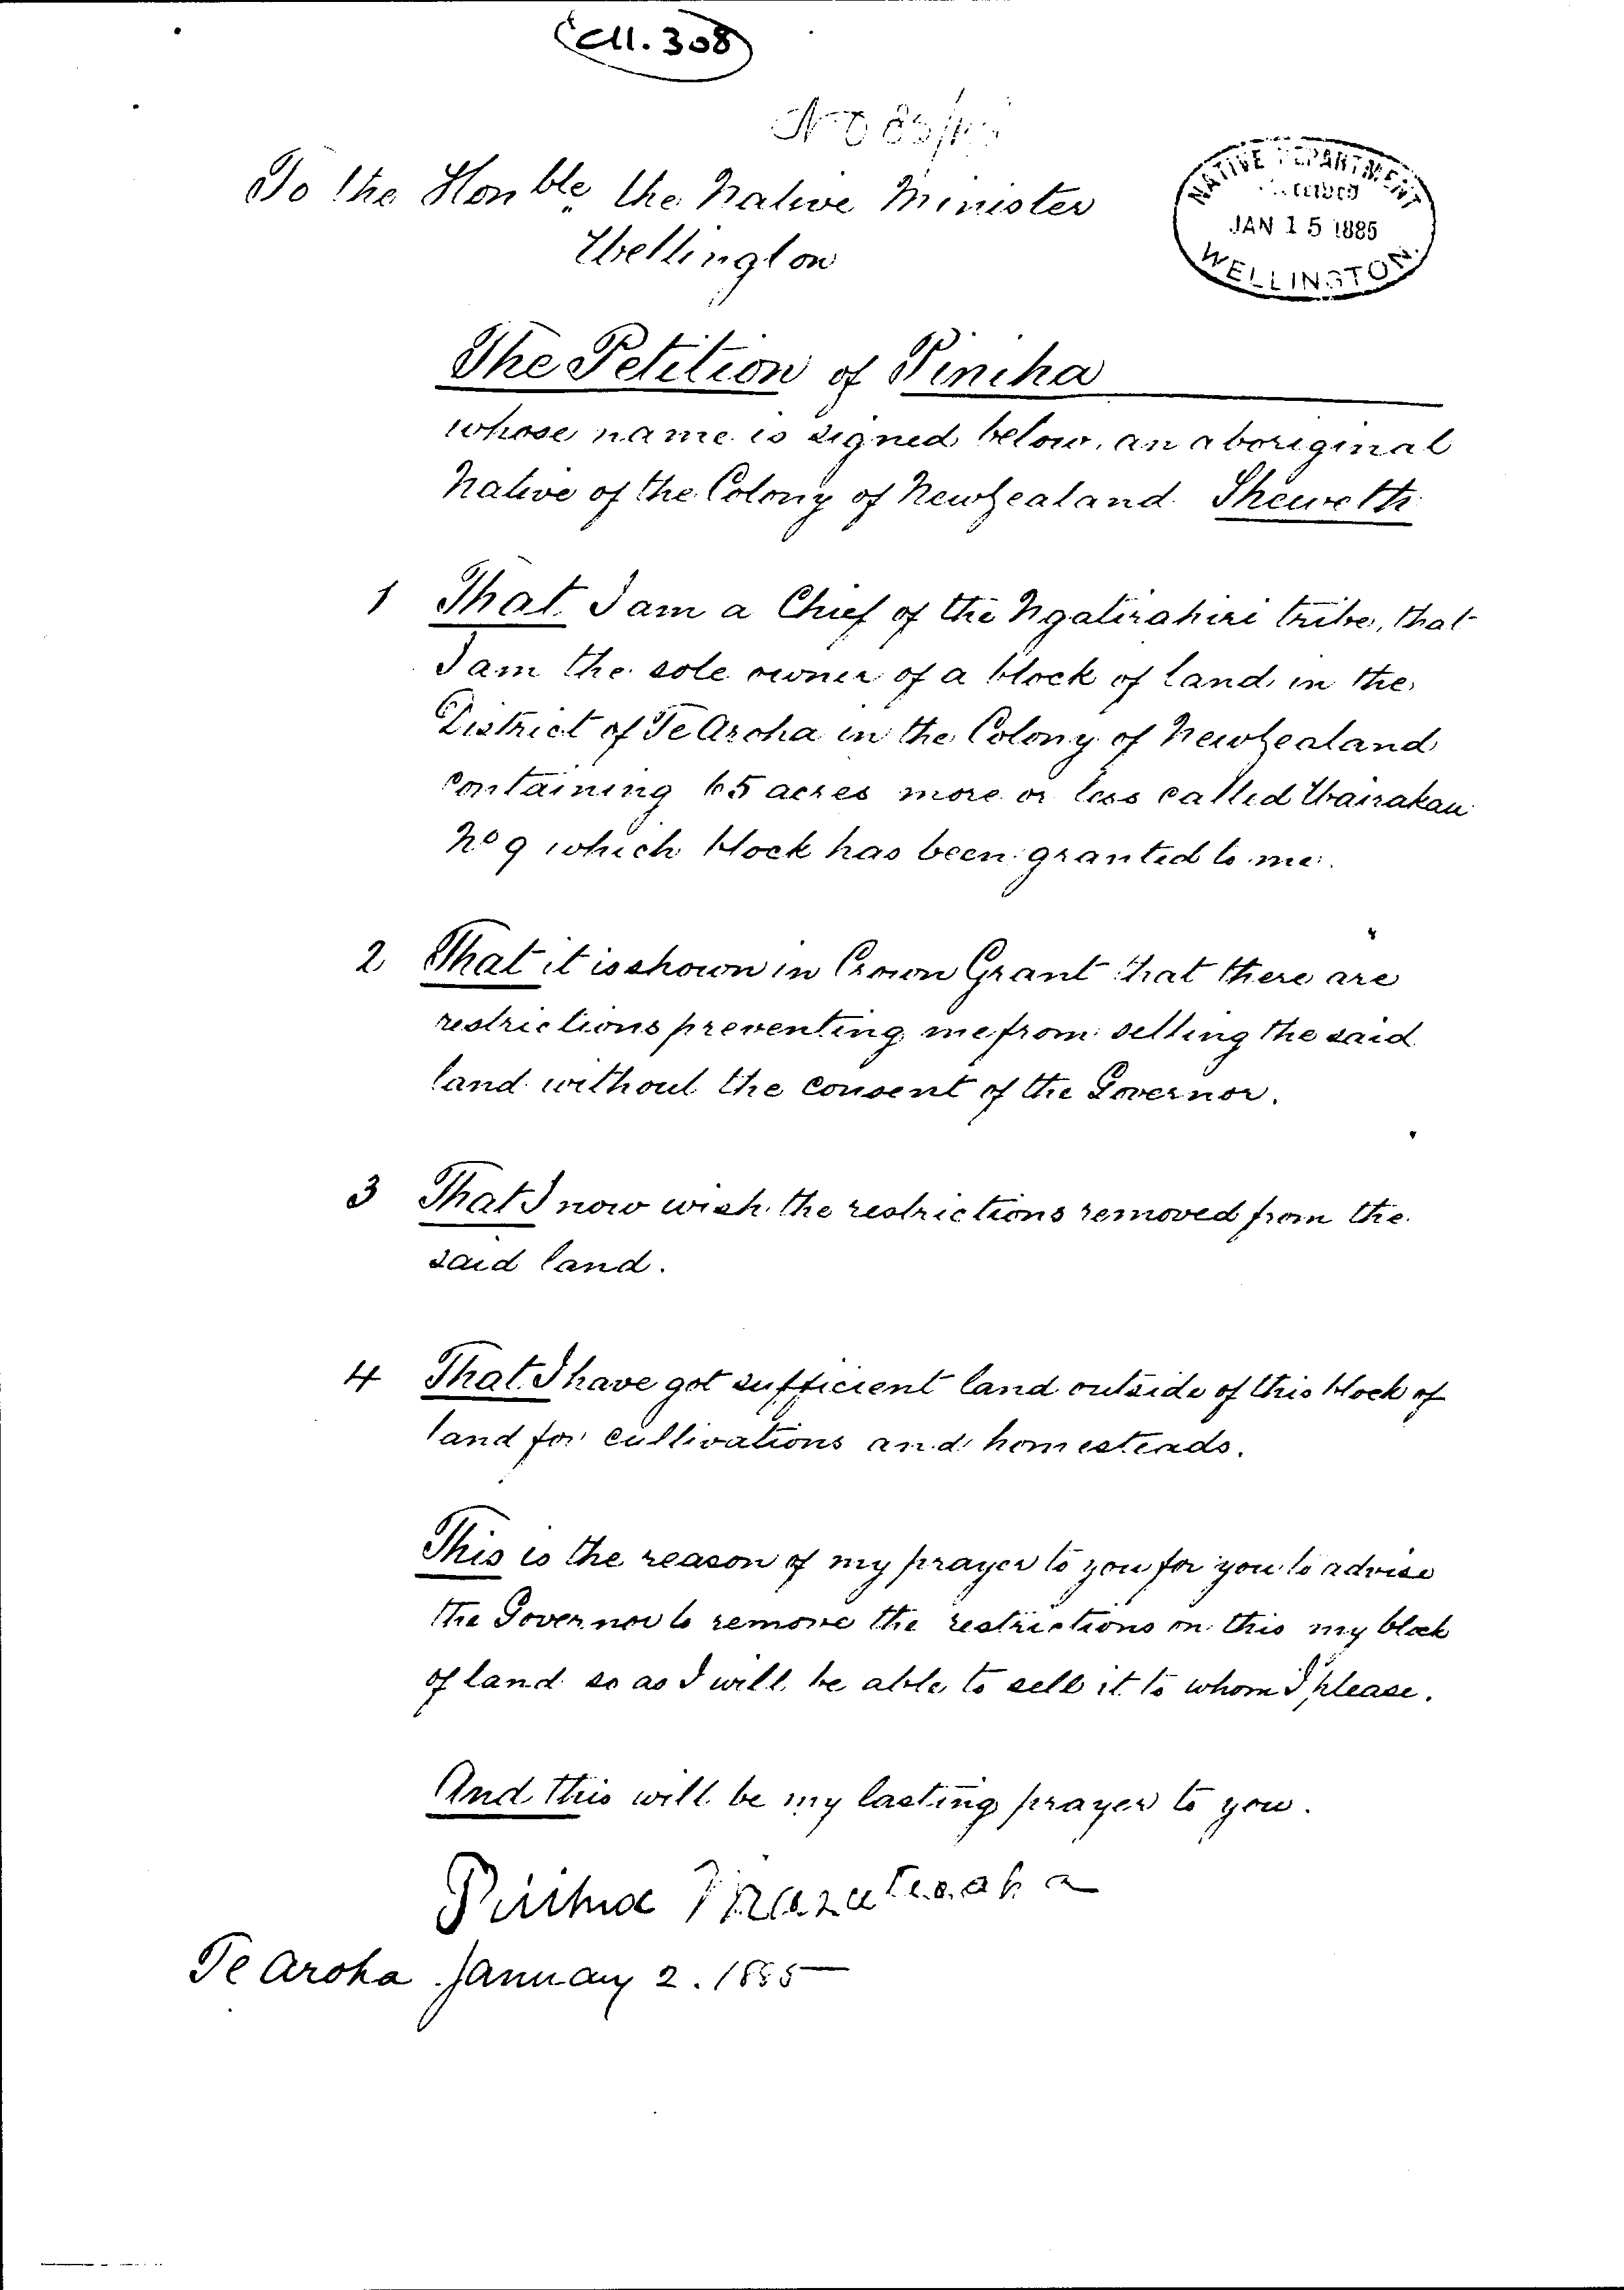 C11.308
To the Honble the Native Minister
Wellington
NATIVE DEPARTMENT
JAN 15 1885
WELLINGTON.
The Petition of Piniha
whose name is signed below, an aboriginal
Native of the Colony of New Zealand Sheweth
1 That I am a Chief of the Ngatirahiri tribe, that
I am the sole owner of a block of land in the
District of Te Aroha in the Colony of New Zealand
containing 65 acres more or less called Wairakau
No 9 which block has been granted to me.
2 That it is shown in Crown Grant that there are
restrictions preventing me from selling the said
land without the consent of the Governor.
3 That I now wish the restrictions removed from the
said land.
4 That I have got sufficient land outside of this block of
land for cultivations and homesteads.
This is the reason of my prayer to you for you to advise
the Governor to remove the restrictions on this my block
of land so as I will be able to sell it to whom I please.
And this will be my lasting prayer to you.
Piniha
Te Aroha January 2. 1885